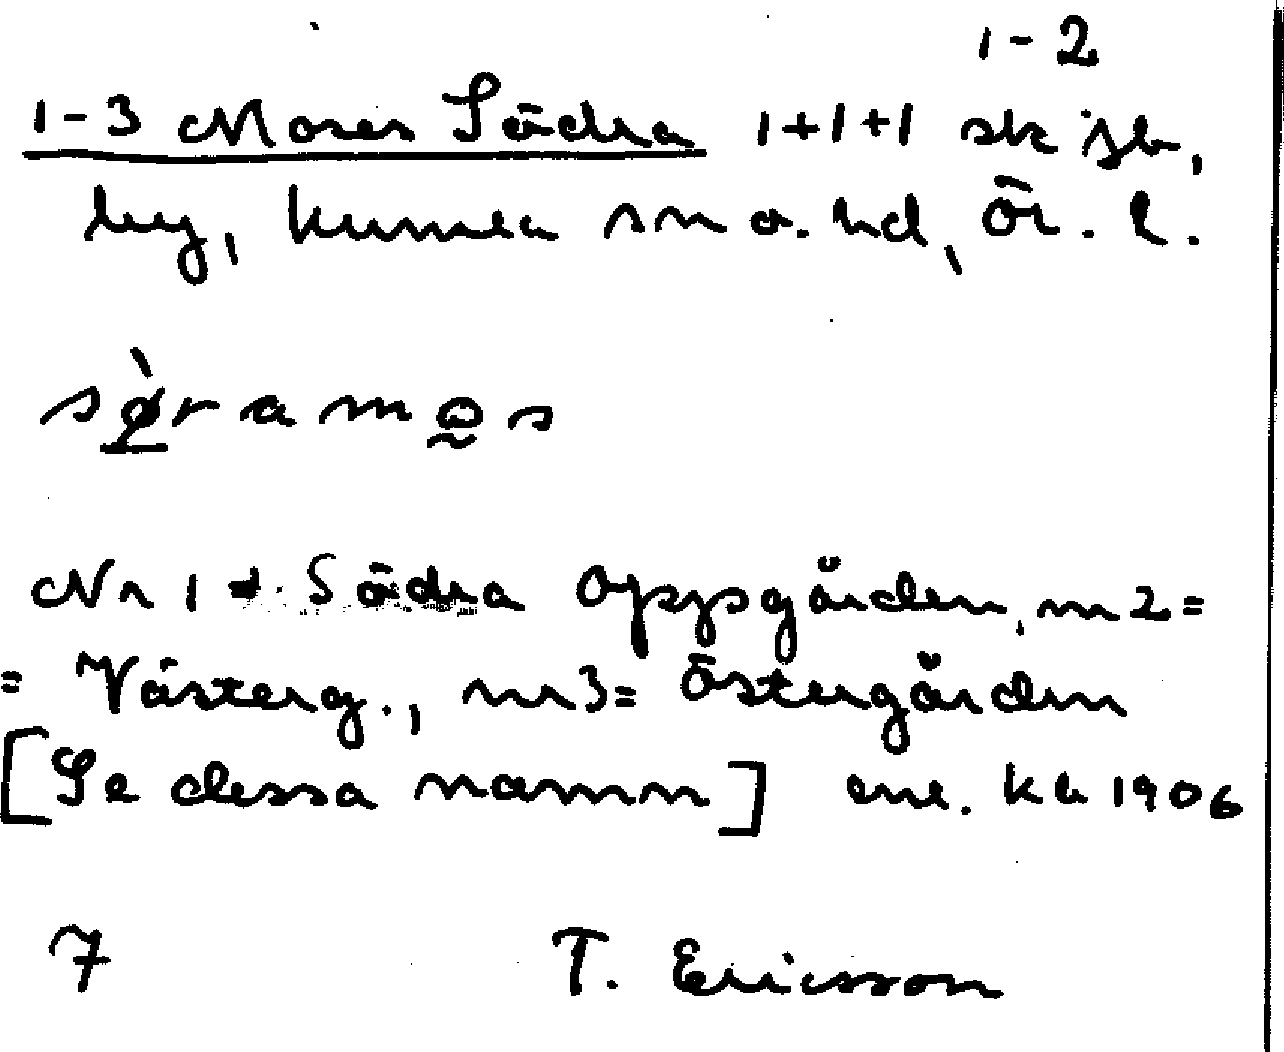 1-2
1-3 Moses Södra 1+1+1 sk jb,
by, Kumla sn o. hd, Ör. l.
sø̀ramos
Nr 1 = Södra Oppgården, nr 2 =
= Västerg., nr 3 = Östergården
[Se dessa namn] enl. kb 1906
7 T. Ericsson